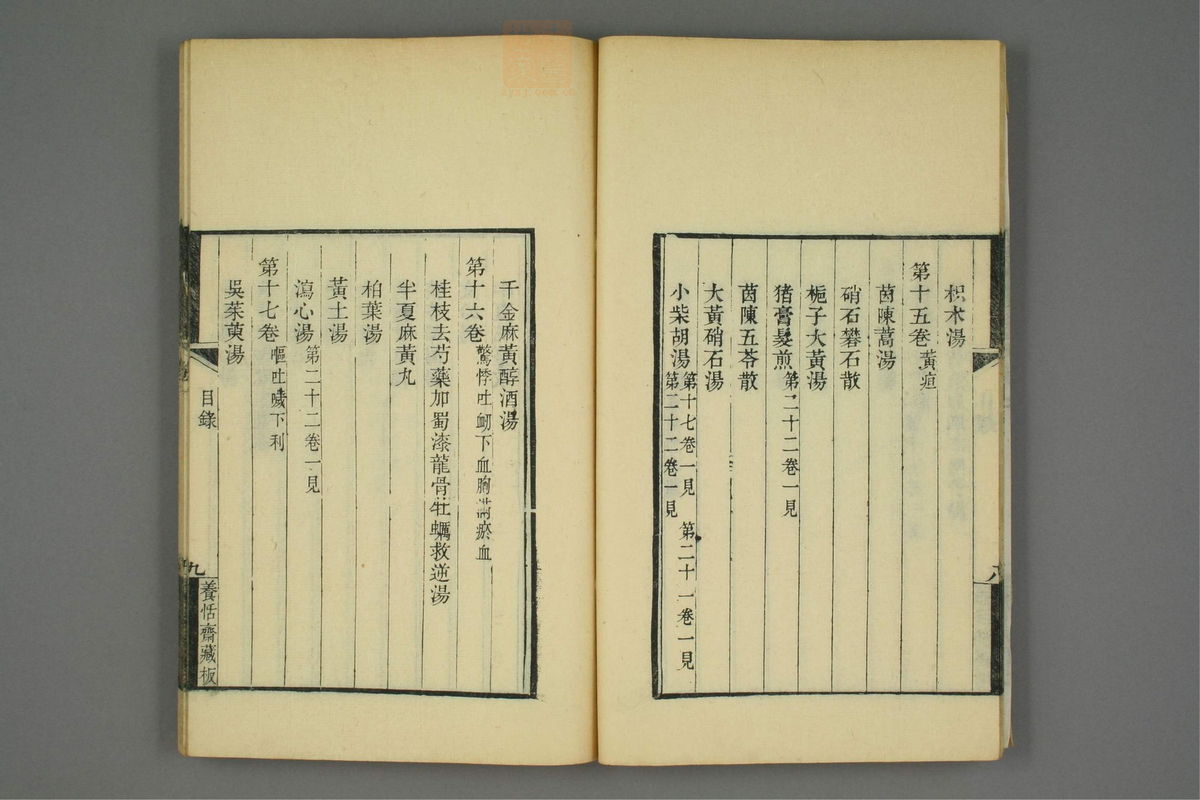 枳朮湯
第十五卷 黃疸
茵陳蒿湯
硝石礬石散
梔子大黃湯
猪膏髮煎 第二十二卷一見
茵陳五苓散
大黃硝石湯
小柴胡湯 第十七卷一見 第二十一卷一見
第二十二卷一見
八
千金麻黃醇酒湯
第十六卷 驚悸吐衂下血胸滿瘀血
桂枝去芍藥加蜀漆龍骨牡蠣救逆湯
半夏麻黃丸
柏葉湯
黃土湯
瀉心湯 第二十二卷一見
第十七卷 嘔吐噦下利
吳茱萸湯
目錄
九
養恬齋藏板